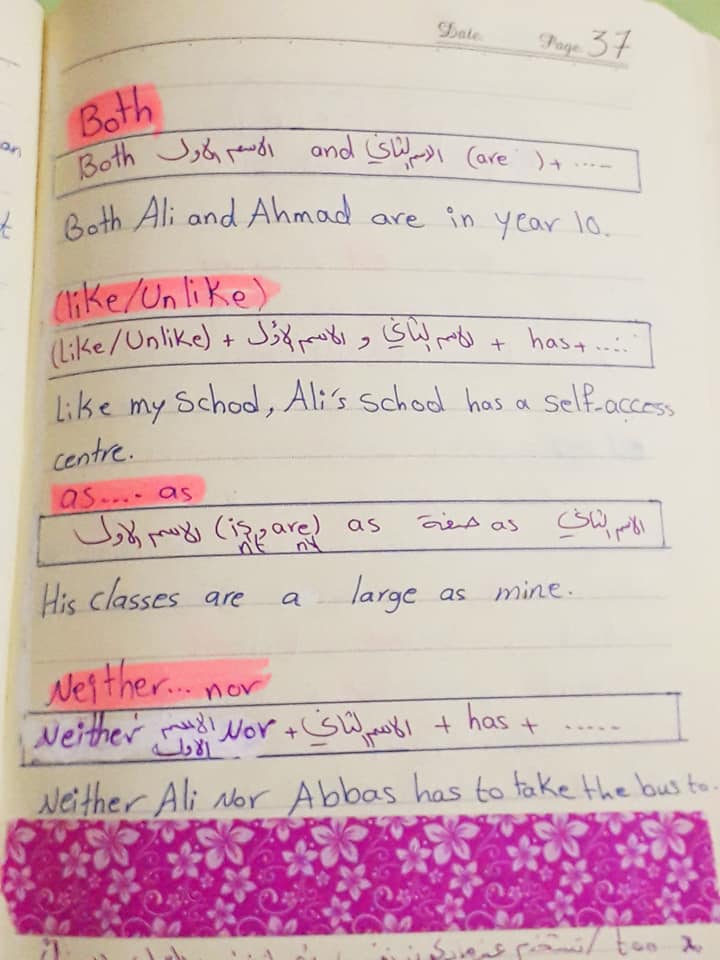 Date Page 37
Both
Both الاسم الاول and الاسم الثاني (are) + .....
Both Ali and Ahmad are in year 10.
(like/Unlike)
(Like/Unlike) + الاسم الاول و الاسم الثاني + has + .....
Like my School, Ali's School has a self-access
centre.
as.... as
الاسم الاول (is, are) as صفة as الاسم الثاني
n't n't
His classes are a large as mine.
Neither... nor
Neither الاسم الاول Nor + الاسم الثاني + has + .....
Neither Ali Nor Abbas has to take the bus to.
too